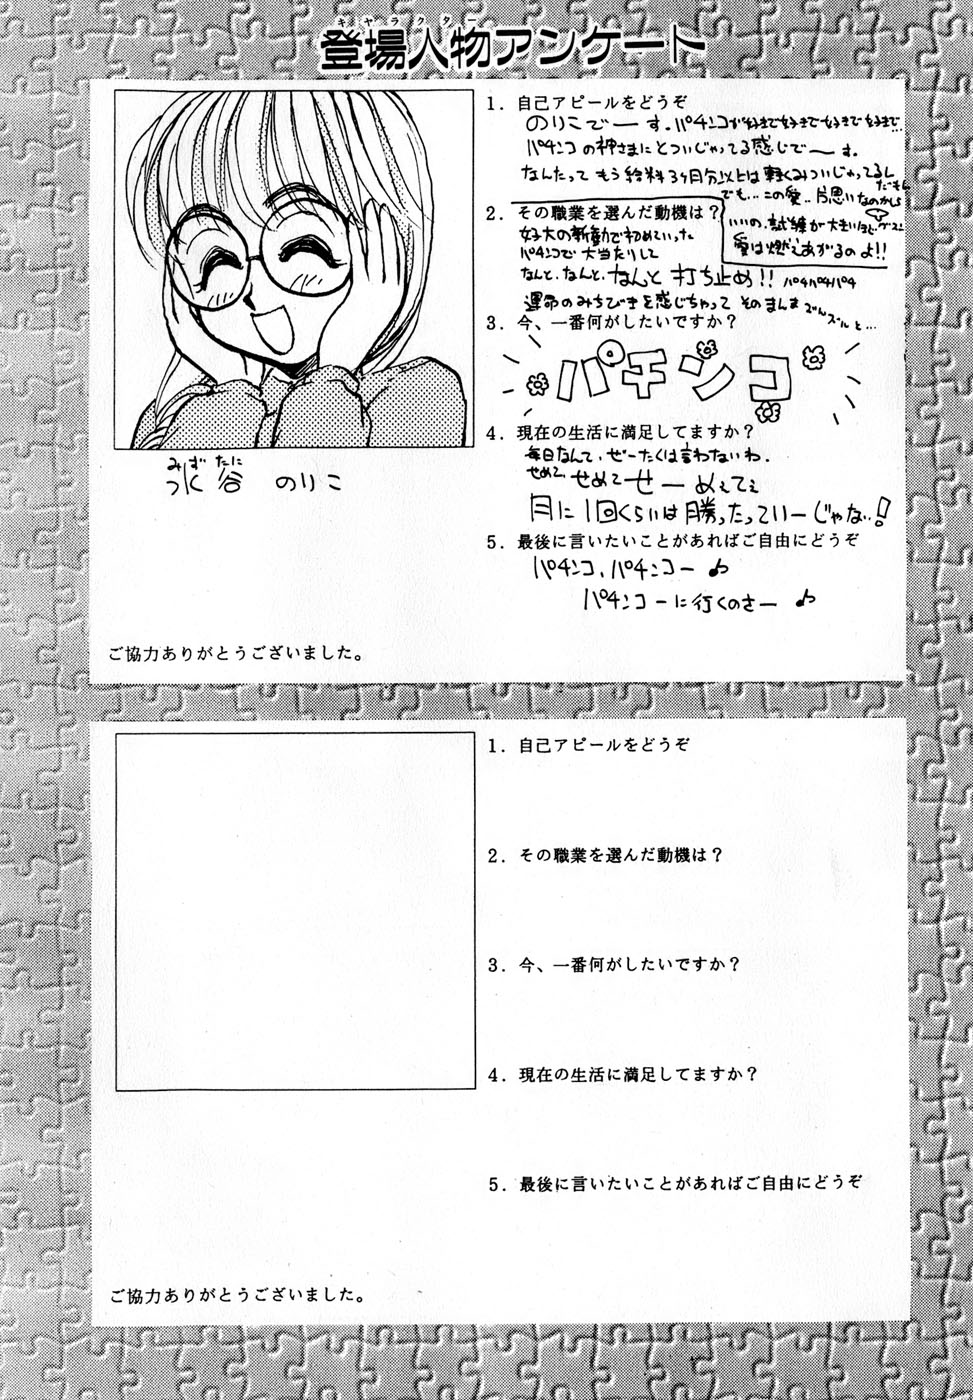 キャラクター
登場人物アンケート
1．自己アピールをどうぞ
のりこでーす．パチンコが好きで好きで好きで好きで…
パチンコの神さまにとついじゃってる感じでーす．
なんたって もう給料3ヶ月分以上は軽くみついじゃってるし
でも…この愛..片思いなのかしら
いいの．試練が大きいほど
愛は燃えあがるのよ!!
2．その職業を選んだ動機は？
パチンコで大当たりして
なんと、なんと、なんと 打ち止め!! パチパチパチ
運命のみちびきを感じちゃって そのまんま ズルズルと…
3．今、一番何がしたいですか？
パチンコ
4．現在の生活に満足してますか？
毎日なんて、ぜーたくは言わないわ．
せめて せめて せーめぇてぇ
月に1回くらいは勝ったっていーじゃない!
5．最後に言いたいことがあればご自由にどうぞ
パチンコ、パチンコー♪
パチンコーに行くのさー♪
みずたに
水谷 のりこ
ご協力ありがとうございました。
1．自己アピールをどうぞ
2．その職業を選んだ動機は？
3．今、一番何がしたいですか？
4．現在の生活に満足してますか？
5．最後に言いたいことがあればご自由にどうぞ
ご協力ありがとうございました。